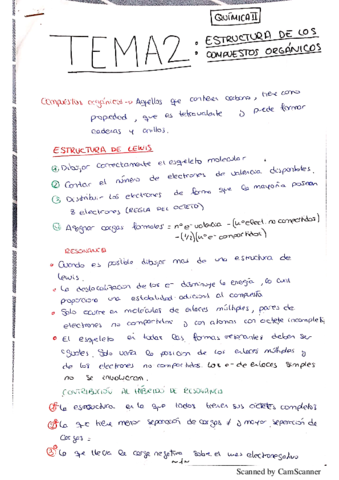 QUÍMICA II
TEMA 2: ESTRUCTURA DE LOS
COMPUESTOS ORGÁNICOS
Compuestos orgánicos → Aquellos que contienen carbono, tiene como
propiedad, que es tetravalente y puede formar
cadenas y anillos.
ESTRUCTURA DE LEWIS
① Dibujar correctamente el esqueleto molecular
② Contar el número de electrones de valencia disponibles.
③ Distribuir los electrones de forma que la mayoría posean
8 electrones (REGLA DEL OCTETO)
④ Asignar cargas formales = nº e- valencia - (nº elect. no compartidos)
- (1/2)(nº e- compartidos)
RESONANCIA
• Cuando es posible dibujar mas de una estructura de
Lewis.
• La deslocalización de los e- disminuye la energía, lo cual
proporciona una estabilidad adicional al compuesto
• Solo ocurre en moléculas de enlaces múltiples, pares de
electrones no compartidos y con atomos con octete incompleto
• El esqueleto en todas las formas resonantes deben ser
iguales. Solo varía la posicion de los enlaces múltiples y
de los electrones no compartidos. Los e- de enlaces simples
no se involucran.
CONTRIBUCIÓN AL HÍBRIDO DE RESONANCIA
1º La estructura en la que todos tienen sus octetes completos
2º La que tiene menor separación de cargas y mayor separación de
cargas =
3º La que lleva la carga negativa sobre el mas electronegativo
~1~
Scanned by CamScanner